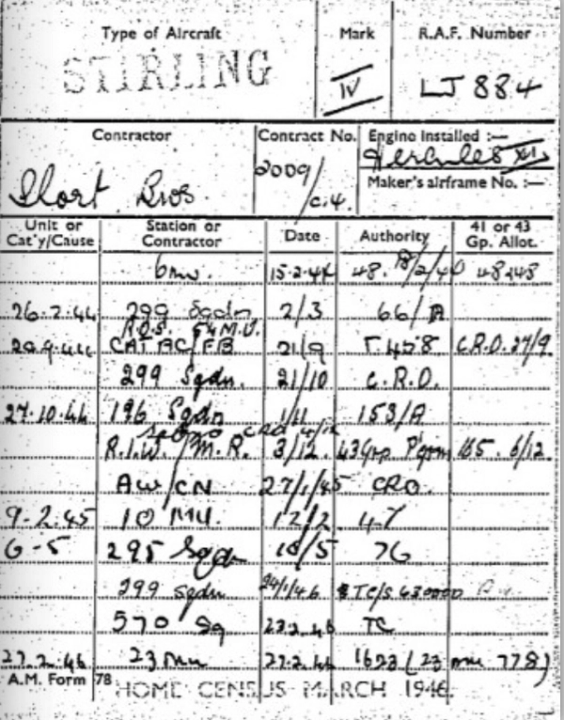 Type of Aircraft Mark R.A.F. Number
STIRLING IV LJ 884
Contractor Contract No. Engine Installed :—
Short Bros. 2009/C.4. Hercules XVI
Maker's airframe No. :—
Unit or Cat'y/Cause Station or Contractor Date Authority 41 or 43 Gp. Allot.
6 mu. 15-2-44 48.
26.2.44 299 Sqdn 2/3 66/A
R.O.S. 54 M.U.
CAT AC/FB 21/9 T.458 C.R.D. 27/9.
299 Sqdn. 21/10 C.R.D.
27.10.44 196 Sqdn 1/11 153/A
R.I.W. M.R. 3/12. 43 Grp P'grm 165. 6/12.
AW/CN 27/1/45 CRO.
9-2.45 10 MU. 12/2. 47
6-5 295 Sqdn 10/5 76
299 sqdn 24/1/46 TC/S
570 Sq 23.2.46 TC
27.2.46 23 mu 27.2.46 1623 (23 mu 778)
A.M. Form 78 HOME CENSUS MARCH 1946.